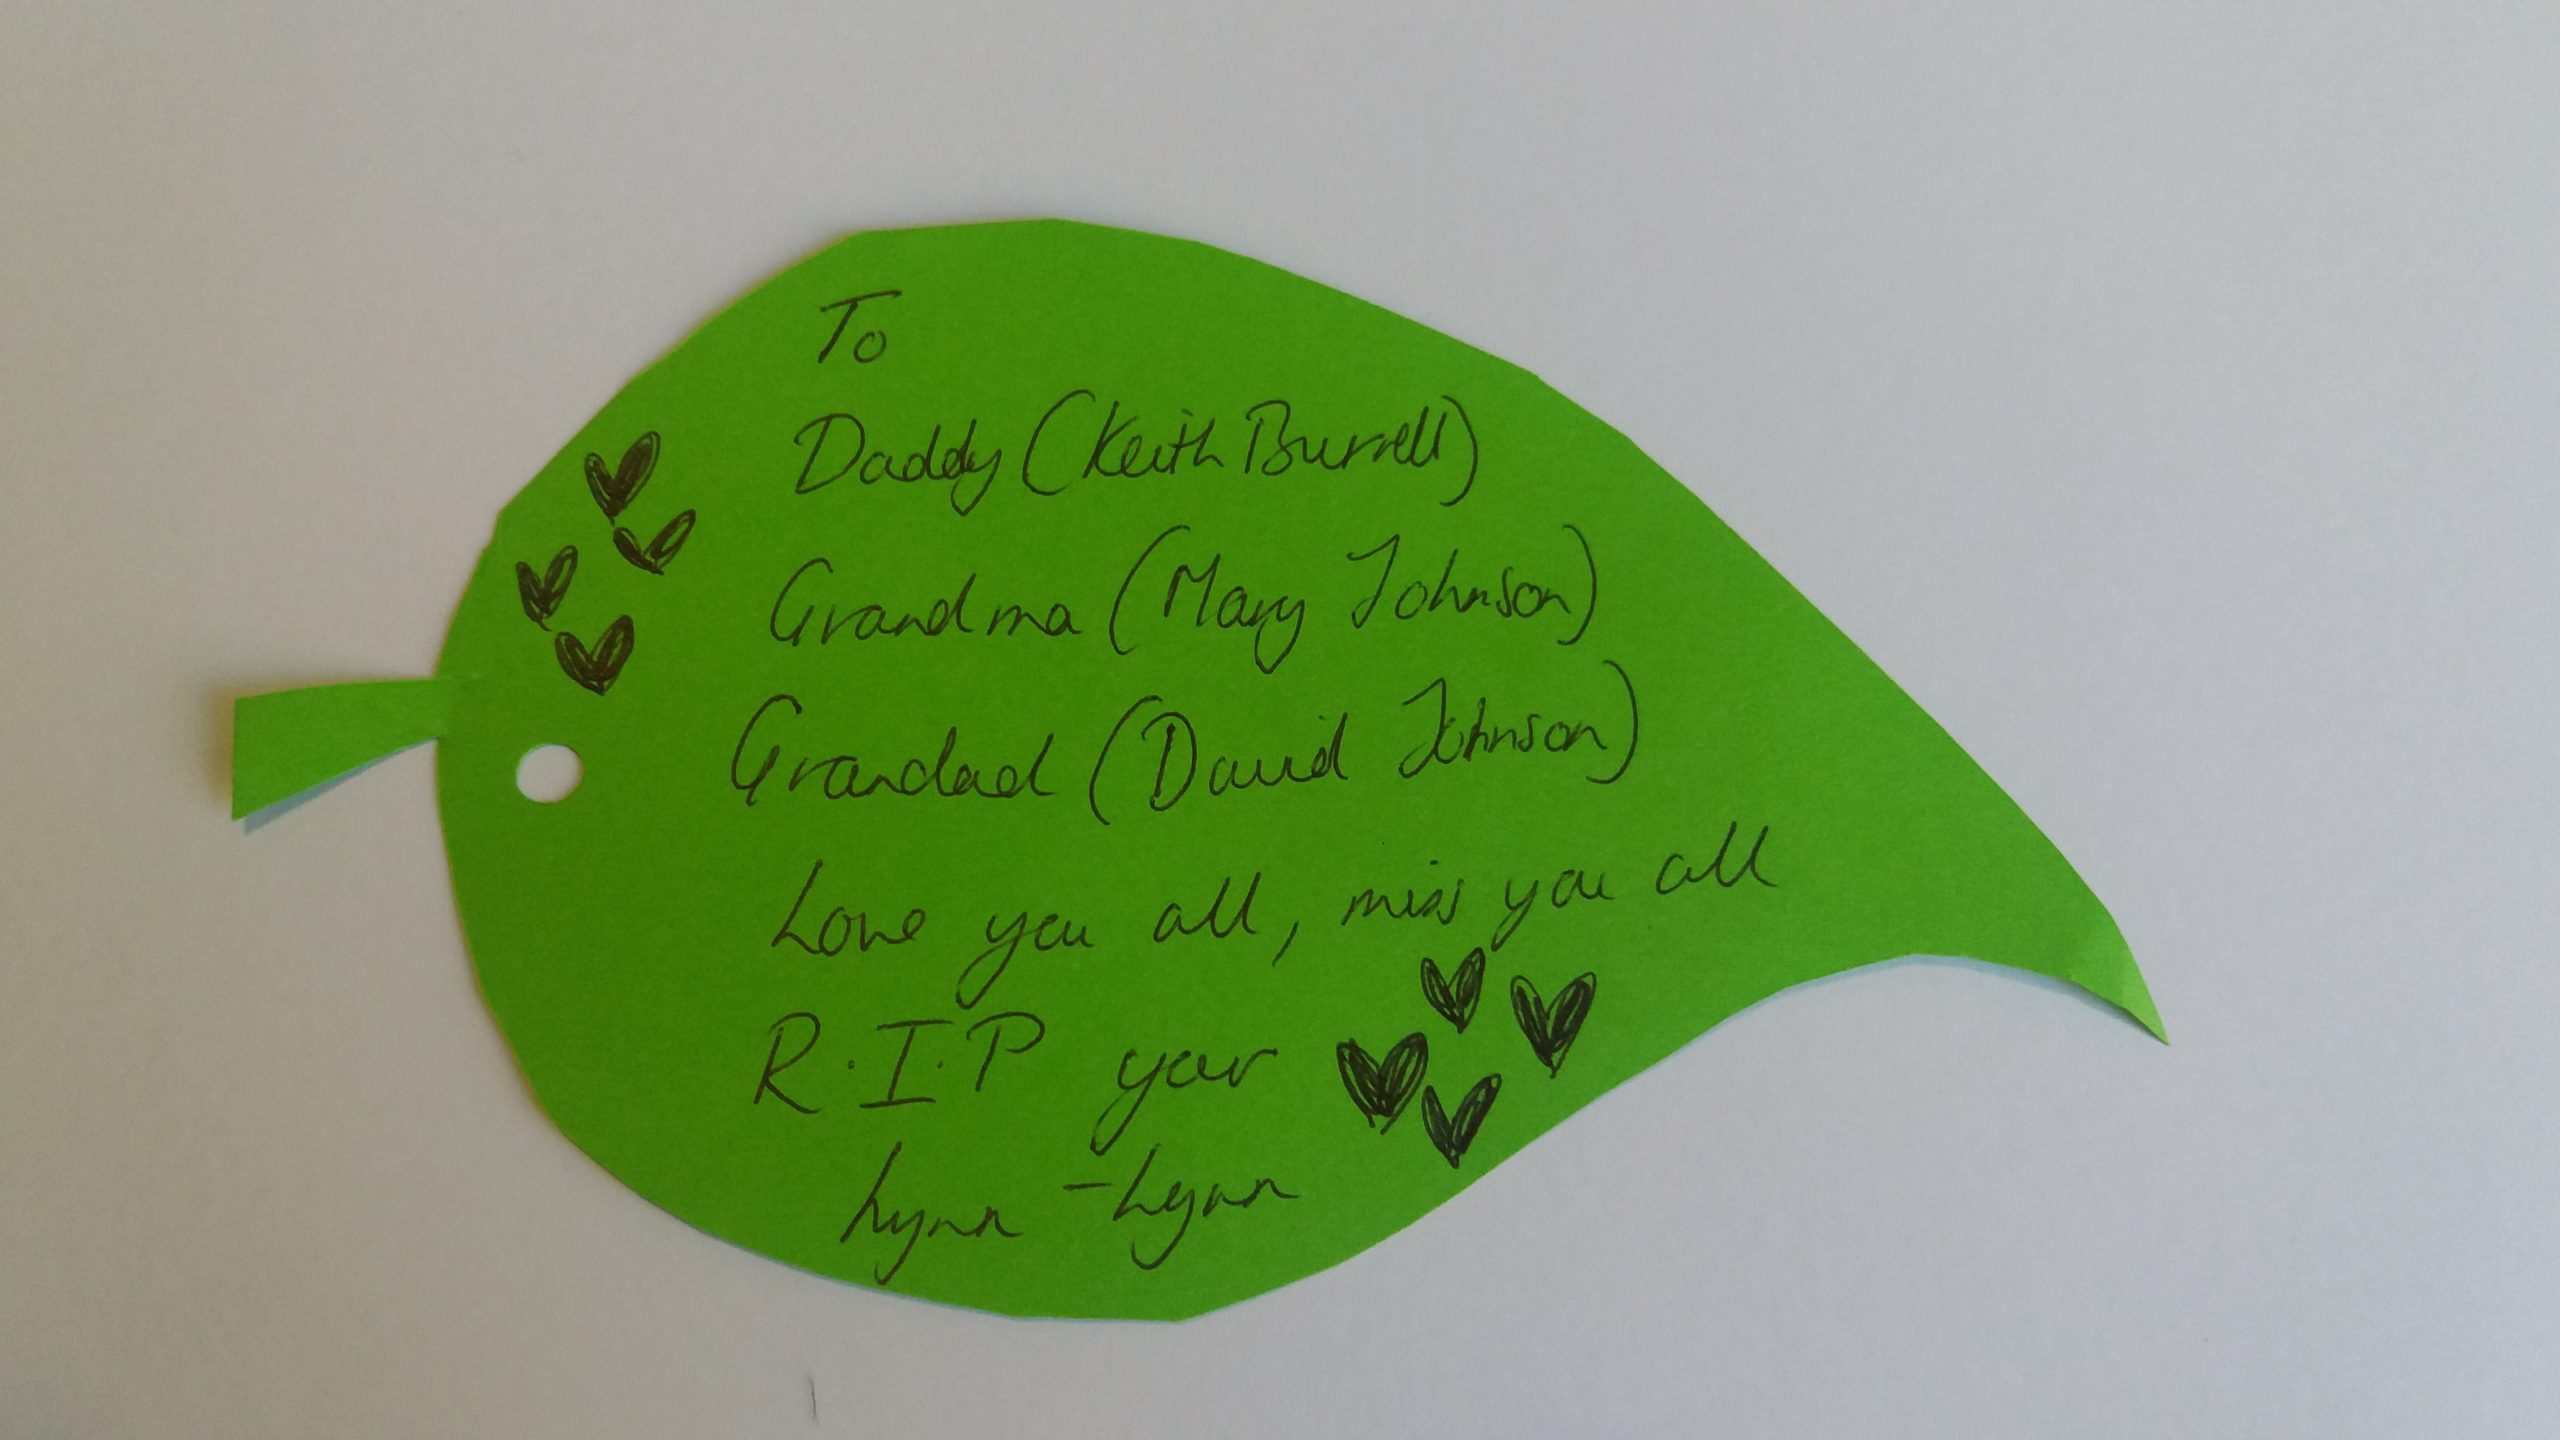 To
Daddy (Keith Burrell)
Grandma (Mary Johnson)
Grandad (David Johnson)
Love you all, miss you all
R.I.P your
Lynn-Lynn